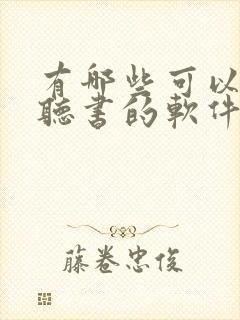 有哪些可以
聽書的軟件
藤卷忠俊